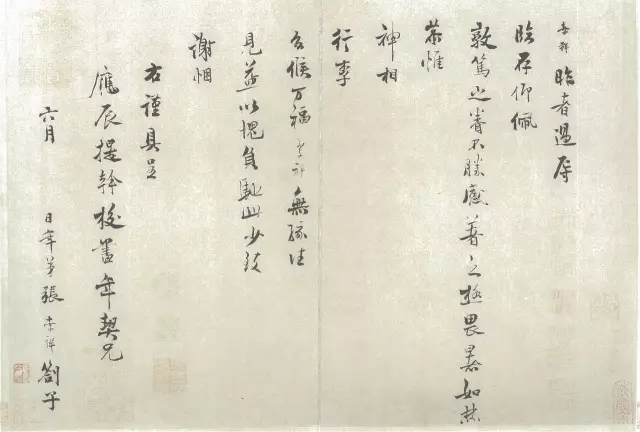 孝祥臨者過辱
臨存仰佩
敦篤之眷不勝感著之極畏暑如焚
恭惟
神相
行李
台候万福孝祥無緣往
見益以愧負馳此少致
謝悃
右謹具呈
應辰提幹校書年契兄
六月 日年弟張孝祥劄子